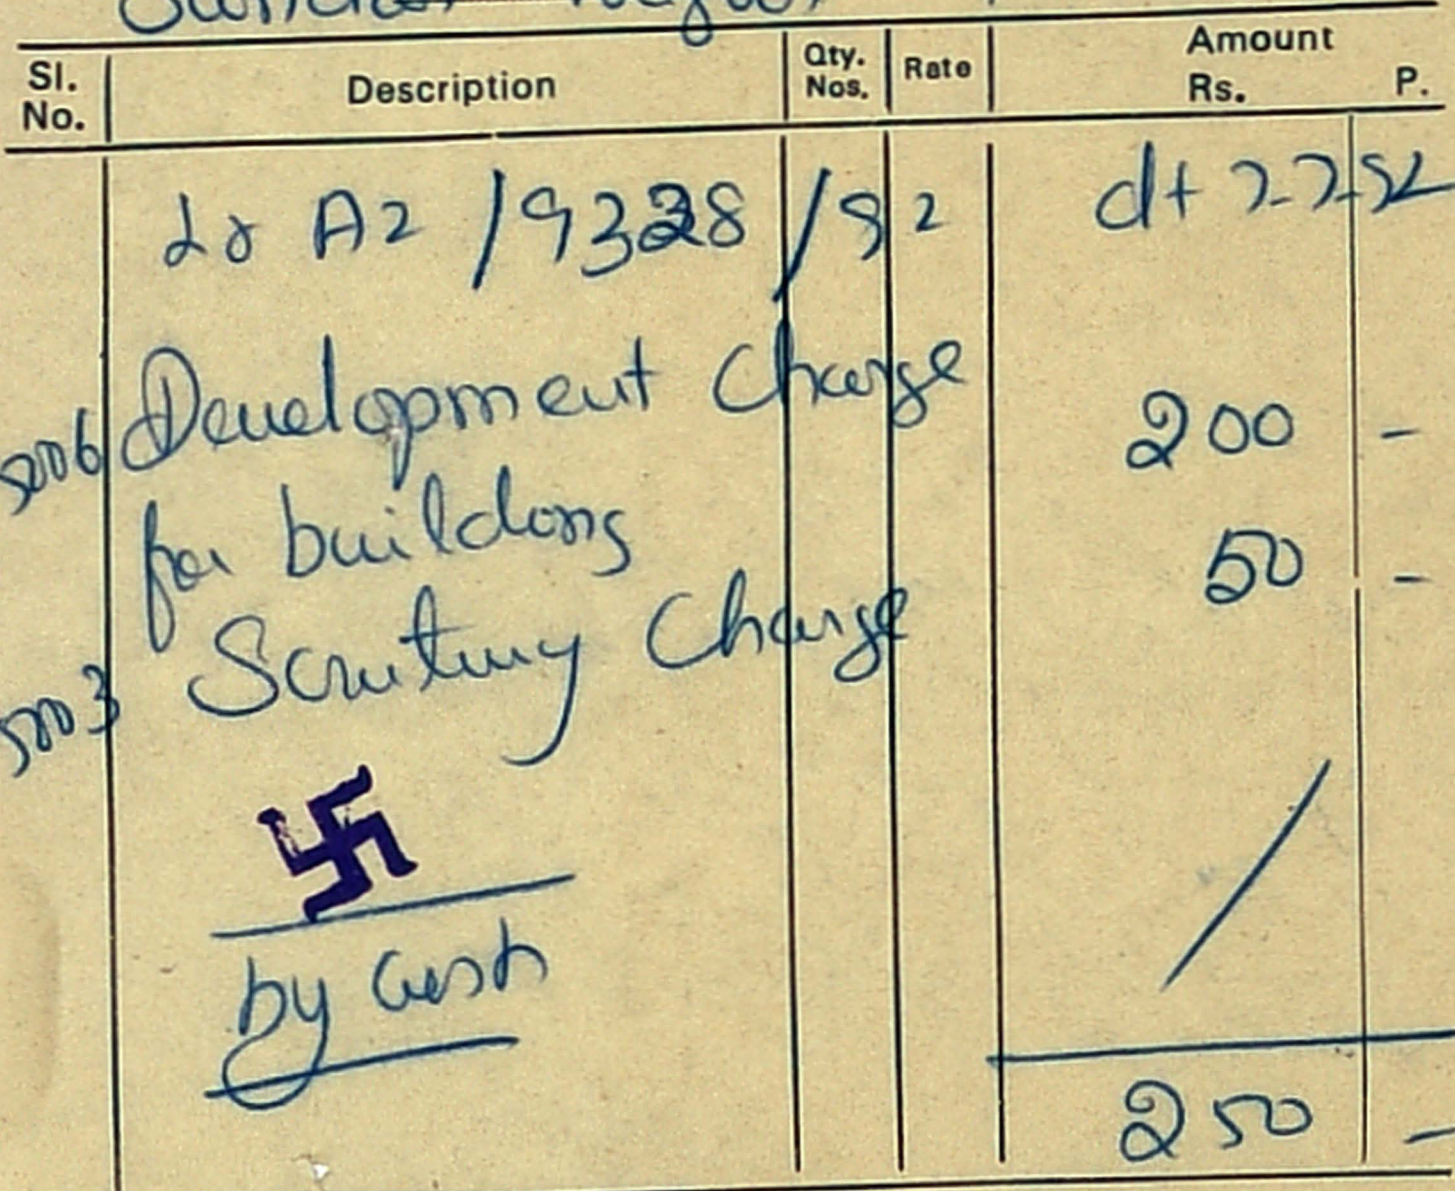 Sl. No. Description Qty. Nos. Rate Amount Rs. P.
Lr A2 /9328 /82 dt
5006 Development Charge 200 -
for buildings 50 -
5003 Scrutiny Charge
by Cash
250 -